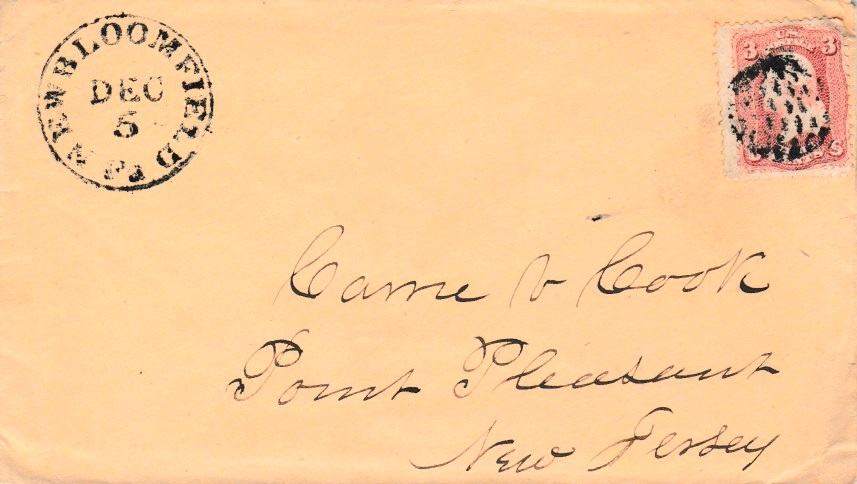 NEW BLOOMFIELD Pa
DEC
5
U.S.
3 3
Carrie V Cook
Point Pleasant
New Jersey